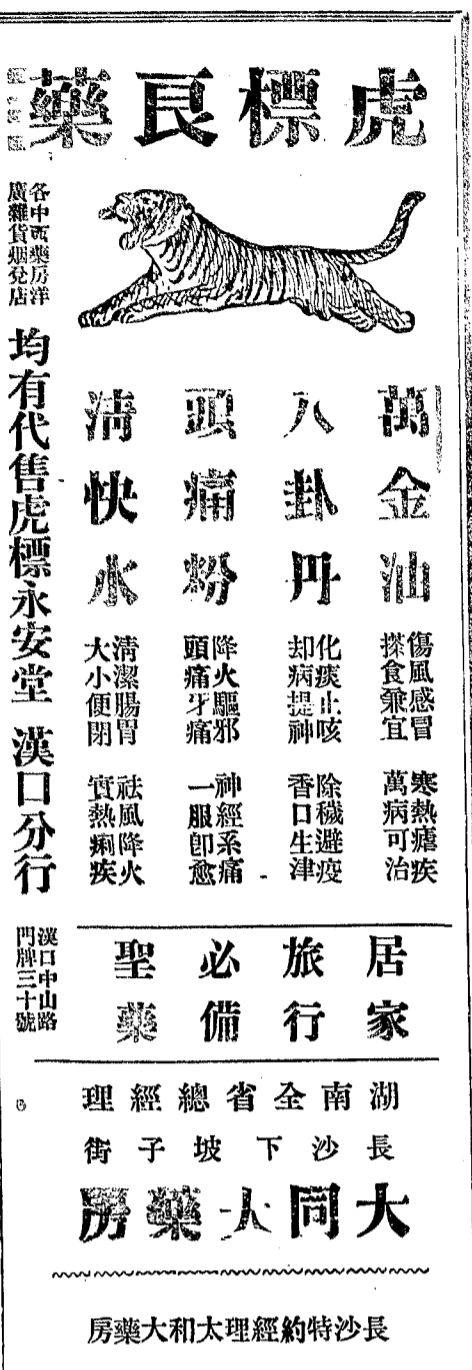 虎標良藥
萬金油
傷風感冒
搽食兼宜
寒熱瘧疾
萬病可治
八卦丹
化痰止咳
却病提神
除穢避疫
香口生津
頭痛粉
降火驅邪
頭痛牙痛
神經系痛
一服卽愈
清快水
清潔腸胃
大小便閉
祛風降火
實熱痢疾
各中西藥房洋
廣雜貨烟兌店
均有代售虎標永安堂 漢口分行
漢口中山路
門牌三十號
居家旅行必備聖藥
湖南全省總經理
長沙下坡子街
大同大藥房
長沙特約經理太和大藥房